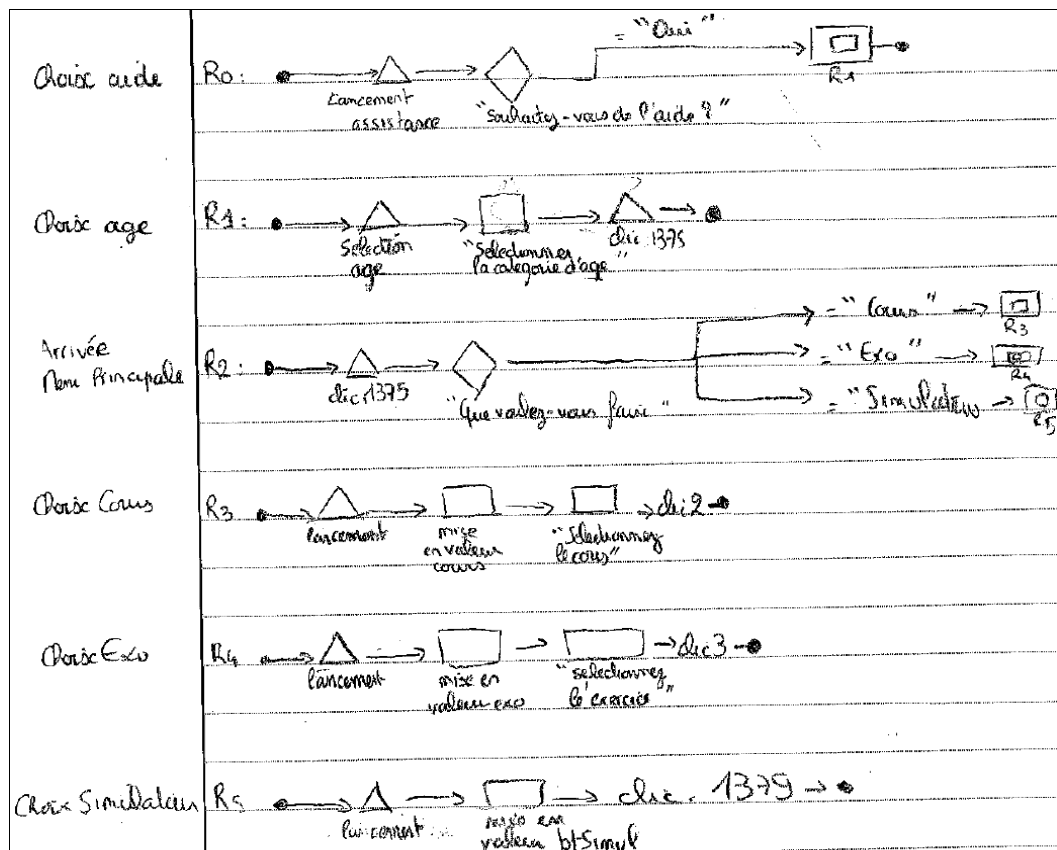 = "Oui"
Choix aide
R0:
R1
Lancement
assistance
"Souhaitez-vous de l'aide ?"
Choix age
R1:
Sélection
age
"Sélectionner
la catégorie d'age"
clic.1375
Arrivée
Menu Principale
R2:
clic.1375
"Que voulez-vous faire"
= "Cours"
R3
= "Exo"
R4
= "Simulation
R5
Choix Cours
R3
lancement
mise
en valeur
cours
"Sélectionnez
le cours"
clic2
Choix Exo
R4
lancement
mise en
valeur exo
"selectionnez
l'exercice"
clic3
Choix Simulateur
R5
lancement
mise en
valeur btSimul
clic. 1379